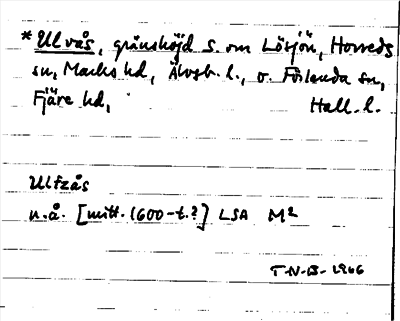 *Ulvås, gränshöjd s. om Lövsjön, Horreds
sn, Marks hd, Älvsb. l., o. Förlanda sn,
Fjäre hd, Hall. l.
Ulfzås
u.å. [mitt. 1600-t.?] LSA M²
T-N-B- 1966